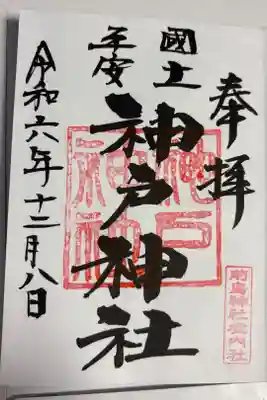 奉拝
國土
平安
神戸神社
令和六年十二月八日
前鳥神社境内社